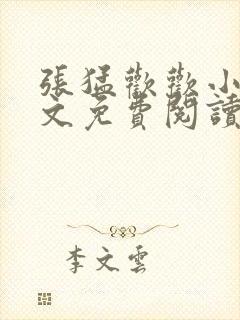 張猛歡歡小
文免費閱讀
李文雲